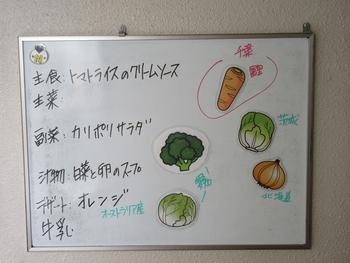 主食:トマトライスのクリームソース
主菜:
副菜:カリポリサラダ
汁物:白菜と卵のスープ
デザート:オレンジ
オーストラリア産
牛乳
千葉
茨城
愛知
北海道